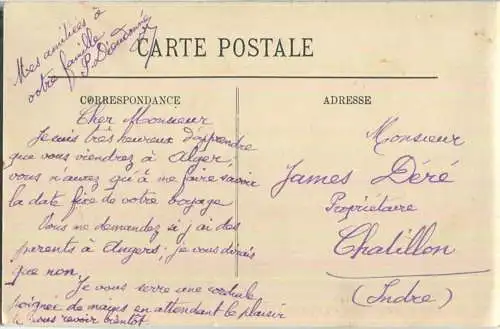 Mes amitiées à
votre famille
S. Dieudonné
CARTE POSTALE
CORRESPONDANCE
Cher Monsieur
Je suis très heureux d'apprendre
que vous viendrez à Alger,
vous n'aurez qu'à me faire savoir
la date fixe de votre voyage
Vous me demandez si j'ai des
parents à Angers; je vous dirais
que non,
Je vous serre une cordiale
poignée de mains en attendant le plaisir
de vous revoir bientôt
ADRESSE
Monsieur
James Déré
Propriétaire
Chatillon
(Indre)